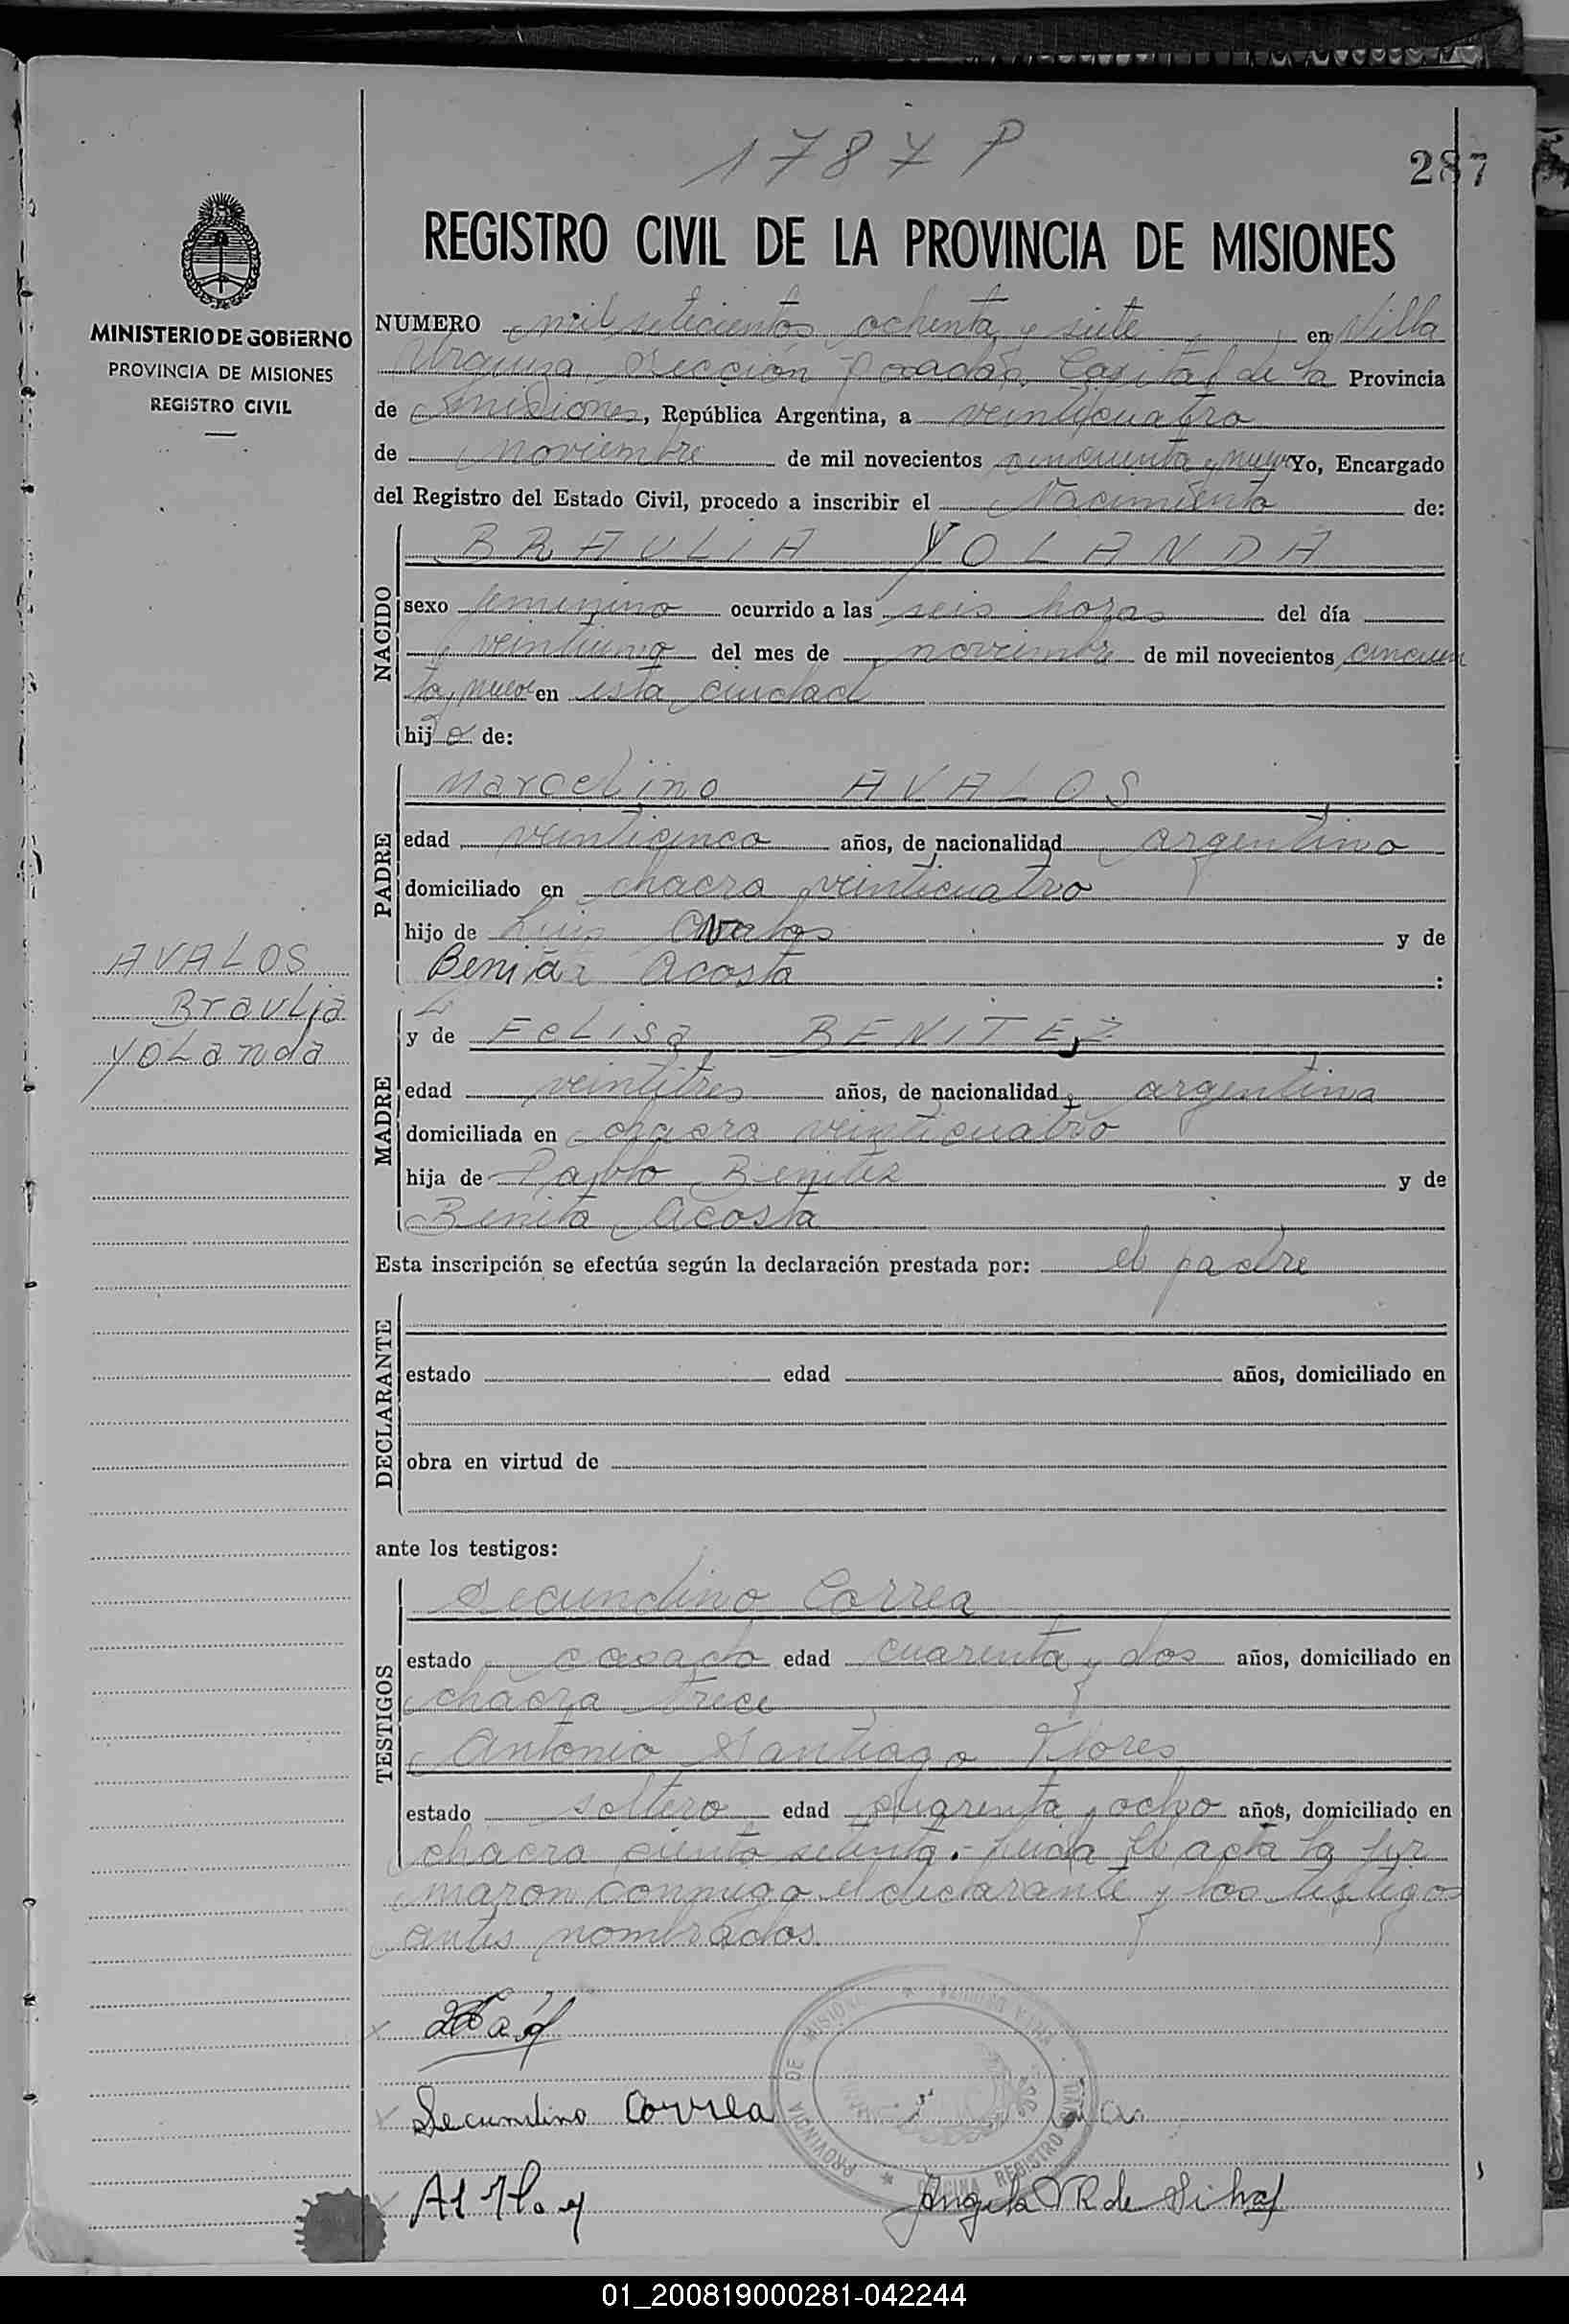 1787 P
287
MINISTERIO DE GOBIERNO
PROVINCIA DE MISIONES
REGISTRO CIVIL
REGISTRO CIVIL DE LA PROVINCIA DE MISIONES
NUMERO mil setecientos ochenta y siete en Villa
Urquiza, Sección Posadas, Capital de la Provincia
de Misiones, República Argentina, a veinticuatro
de noviembre de mil novecientos cincuenta y nueve Yo, Encargado
del Registro del Estado Civil, procedo a inscribir el Nacimiento de:
NACIDO
BRAULIA YOLANDA
sexo femenino ocurrido a las seis horas del día
veintiuno del mes de noviembre de mil novecientos cincuen
ta y nueve en esta ciudad
hija de:
PADRE
Marcelino AVALOS
edad veinticinco años, de nacionalidad argentino
domiciliado en chacra veinticuatro
hijo de Luis Avalos y de
Acosta :
AVALOS
Braulia
Yolanda
MADRE
y de Felisa BENITEZ
edad veintitres años, de nacionalidad argentina
domiciliada en chacra veinticuatro
hija de Pablo Benitez y de
Benita Acosta
Esta inscripción se efectúa según la declaración prestada por: el padre
DECLARANTE
estado edad años, domiciliado en
obra en virtud de
ante los testigos:
TESTIGOS
Secundino Correa
estado casado edad cuarenta y dos años, domiciliado en
chacra trece
Antonio Santiago Flores
estado soltero edad cuarenta y ocho años, domiciliado en
chacra ciento setenta.- Leida el acta la fir
maron conmigo el declarante y los testigos
antes nombrados.
Secundino Correa
PROVINCIA DE MISIONES
OFICINA REGISTRO CIVIL
Angela R de
01_200819000281-042244